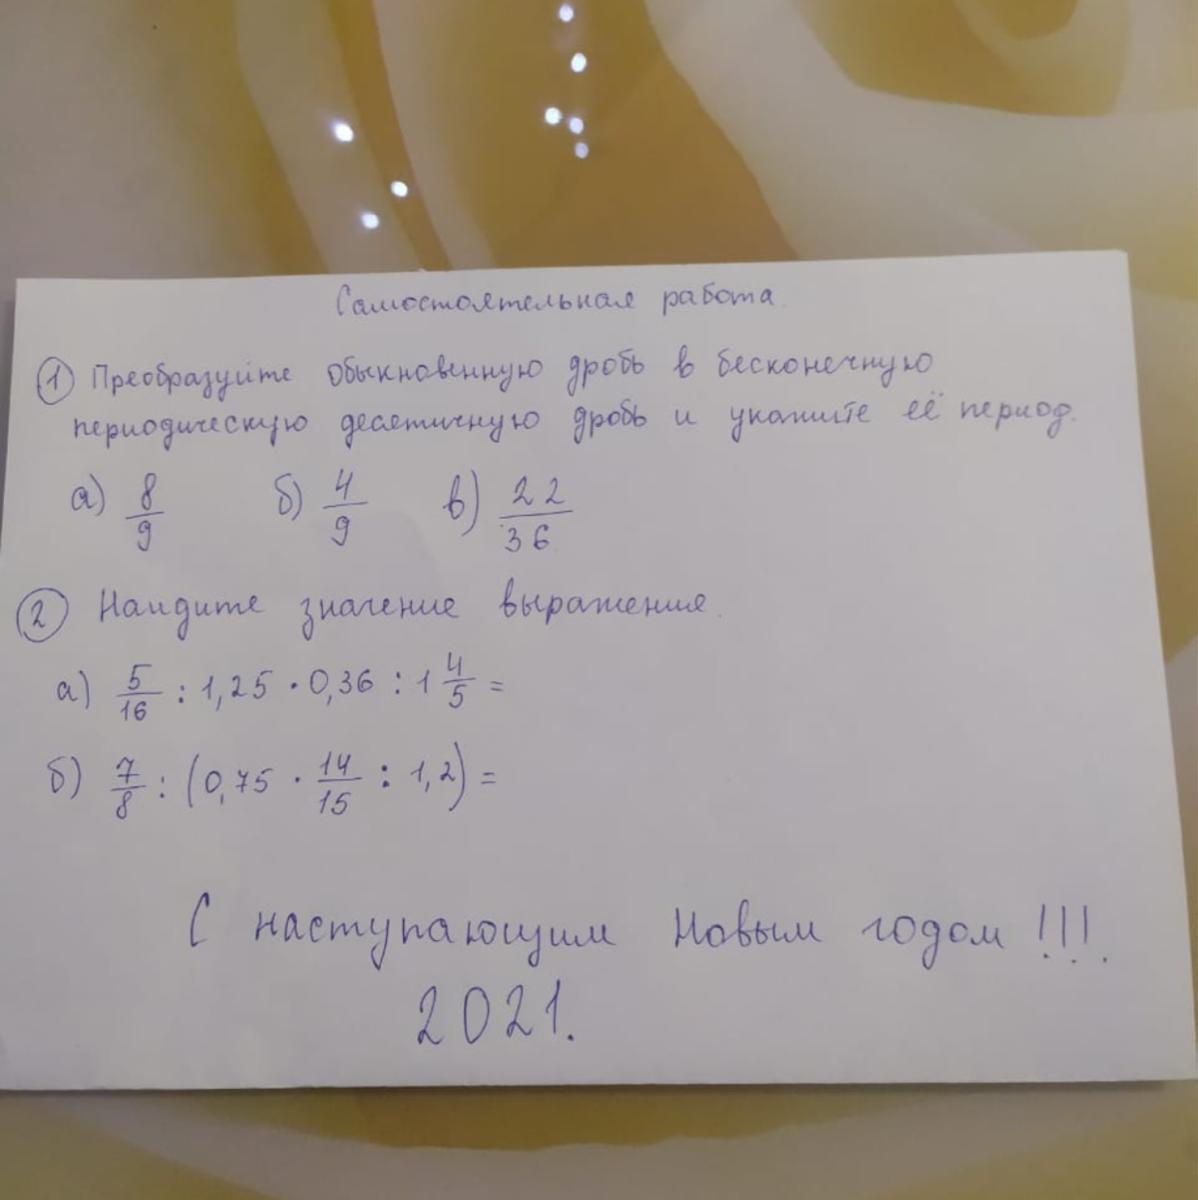 Самостоятельная работа.
1 Преобразуйте обыкновенную дробь в бесконечную
периодическую десятичную дробь и укажите её период.
а) 8/9 б) 4/9 в) 22/36
2 Найдите значение выражения.
а) 5/16 : 1,25 · 0,36 : 1 4/5 =
б) 7/8 : (0,75 · 14/15 : 1,2) =
С наступающим Новым годом !!!
2021.